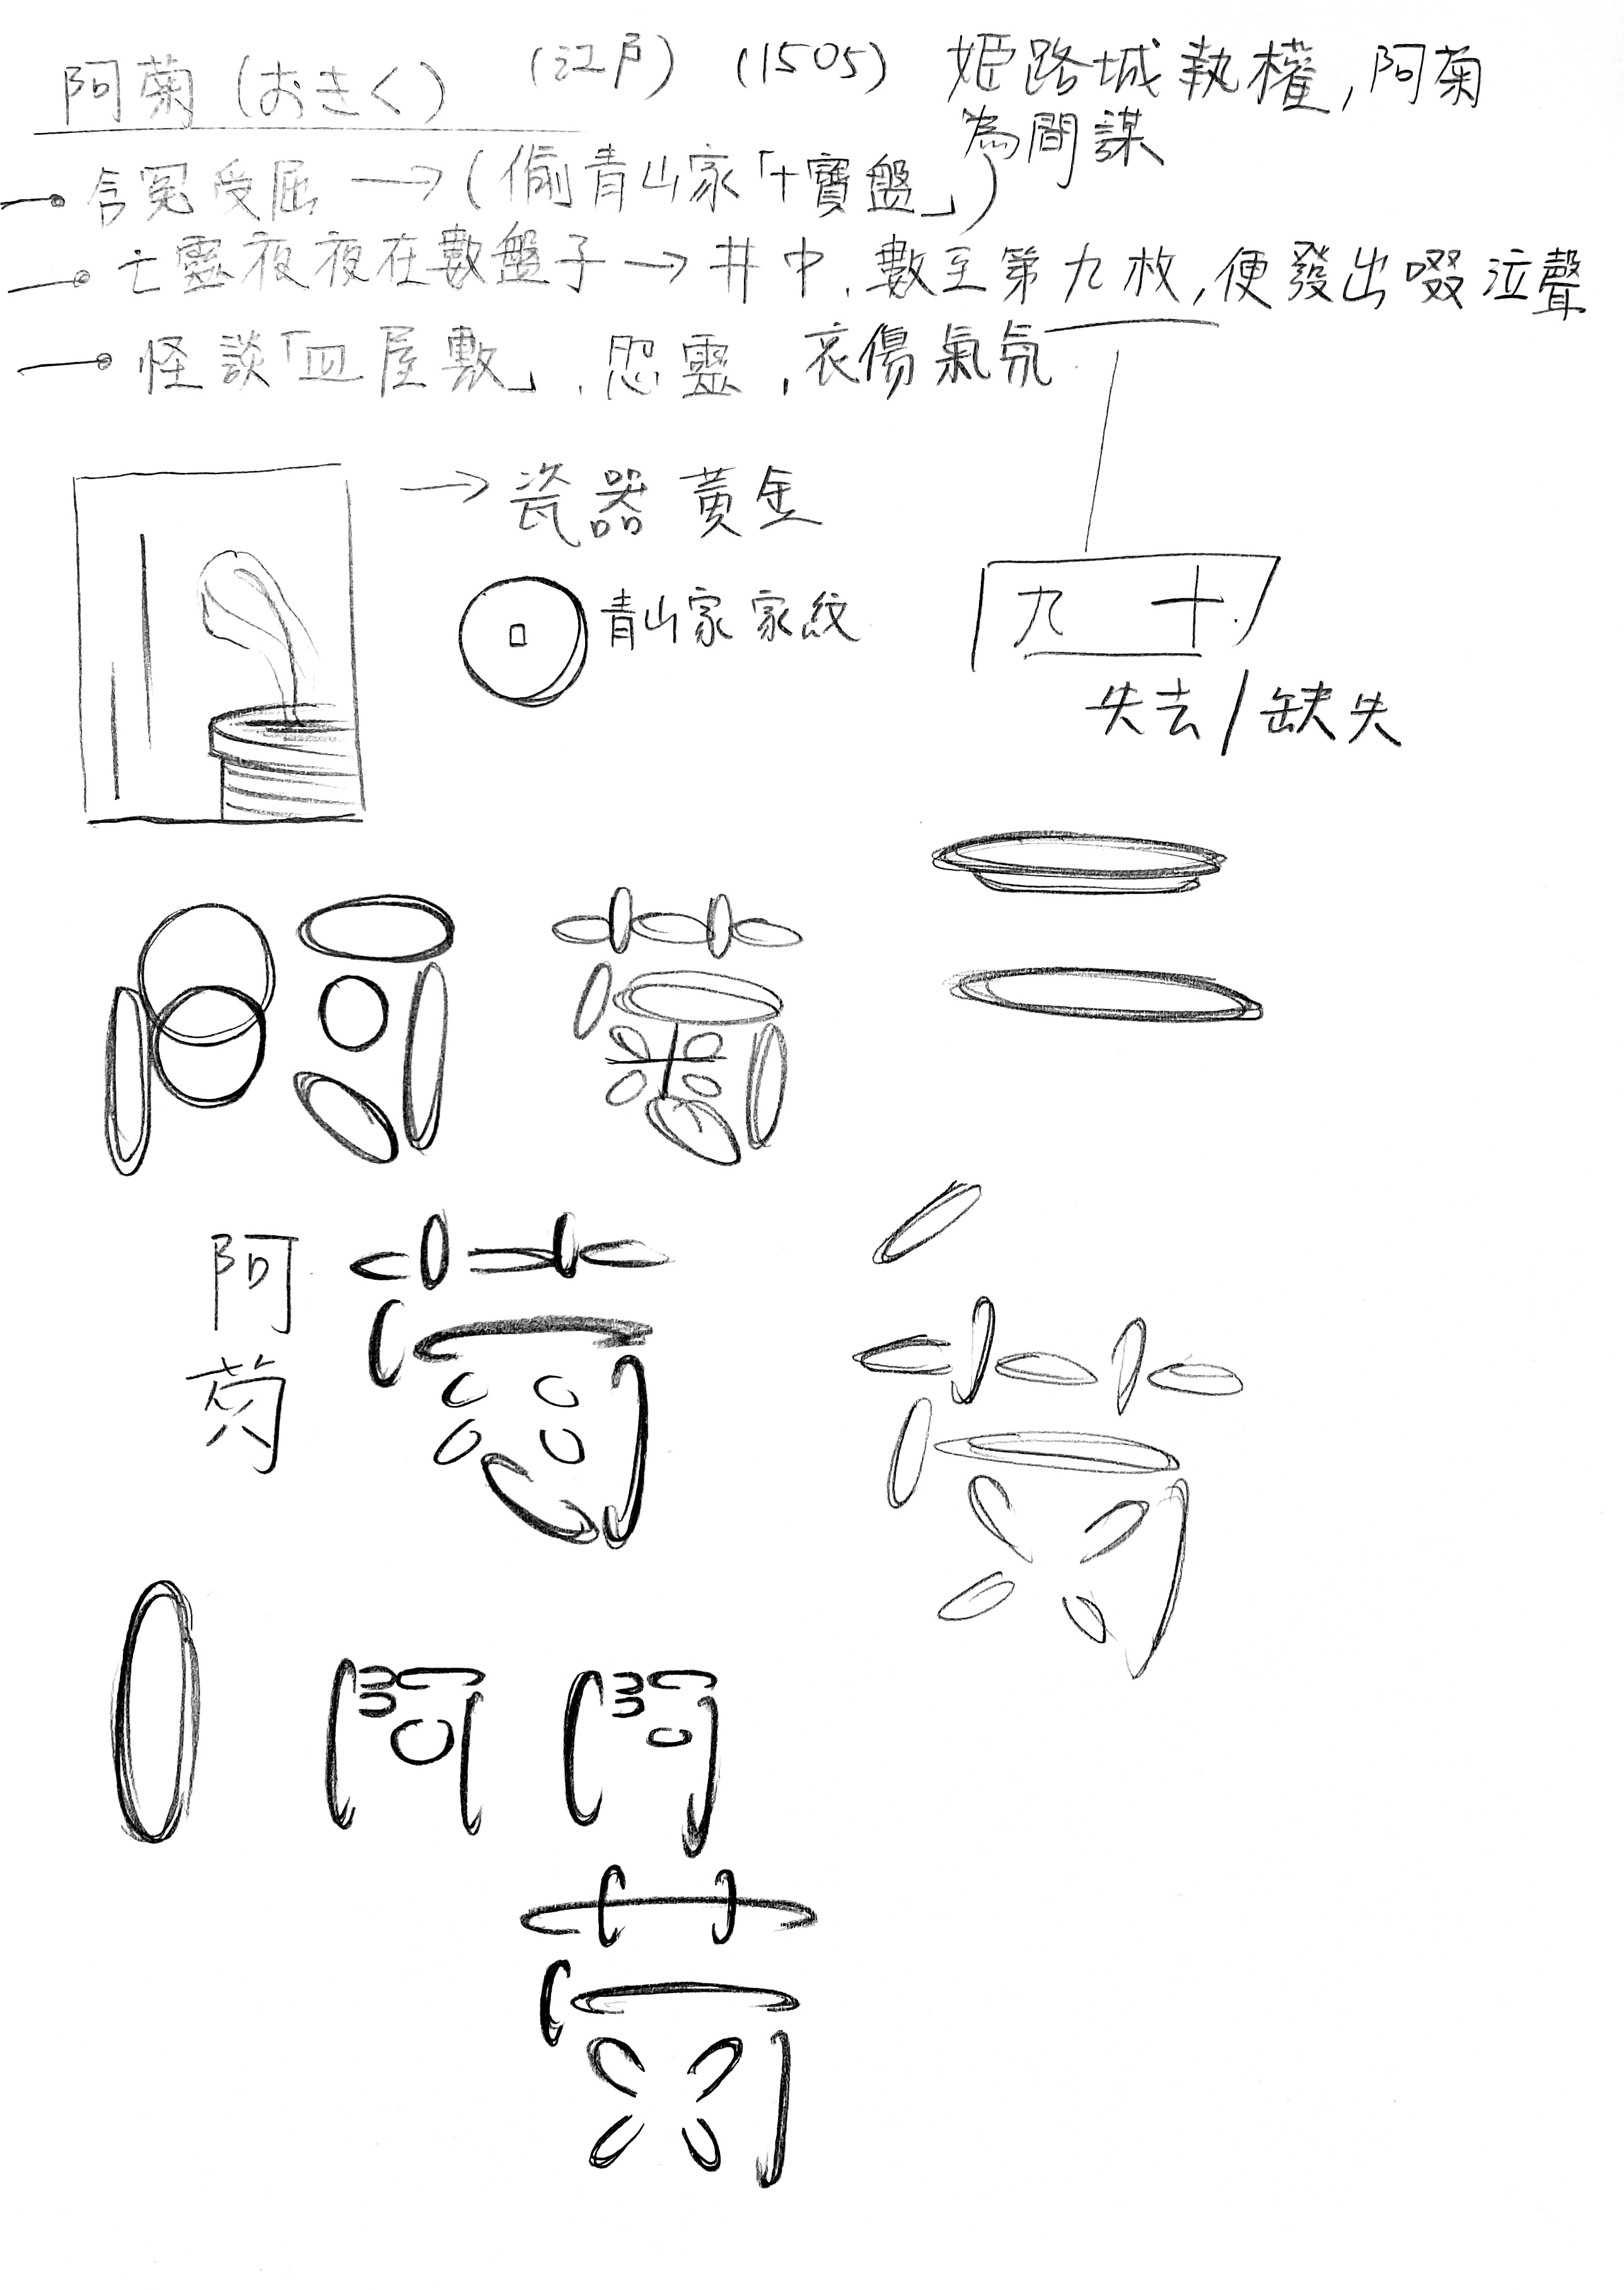 阿菊(おきく) (江戶) (1505) 姫路城執權,阿菊
為間諜
含冤受屈→(偷青山家「十寶盤」)
亡靈夜夜在數盤子→井中,數至第九枚,便發出啜泣聲
怪談「皿屋敷」,怨靈,哀傷氣氛
→瓷器 黃金
青山家家紋
九 十
失去/缺失
阿 菊
阿
菊
菊
菊
阿 阿
菊